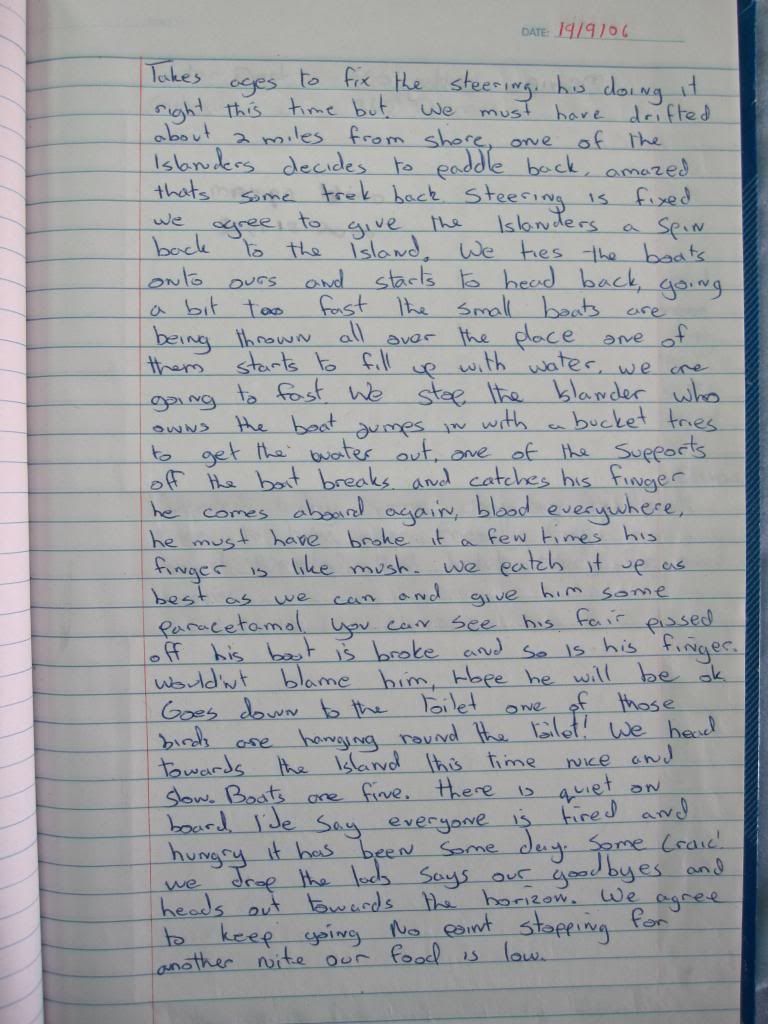 DATE: 19/9/06
Takes ages to fix the steering, his doing it
right this time but. We must have drifted
about 2 miles from shore, one of the
Islanders decides to paddle back, amazed
thats some trek back. Steering is fixed
we agree to give the Islanders a spin
back to the Island, We ties the boats
onto ours and starts to head back, going
a bit too fast the small boats are
being thrown all over the place one of
them starts to fill up with water, we are
going to fast. We stop, the Islander who
owns the boat jumps in with a bucket tries
to get the water out, one of the supports
off the boat breaks and catches his finger
he comes aboard again, blood everywhere,
he must have broke it a few times his
finger is like mush. We patch it up as
best as we can and give him some
paracetamol. You can see his fair pissed
off his boat is broke and so is his finger.
wouldn't blame him, Hope he will be ok
Goes down to the toilet one of those
birds are hanging round the toilet! We head
towards the Island this time nice and
slow. Boats are fine. there is quiet on
board, I'de say everyone is tired and
hungry it has been some day. Some Craic!
we drop the lads says our goodbyes and
heads out towards the horizon. We agree
to keep going No point stopping for
another nite our food is low.